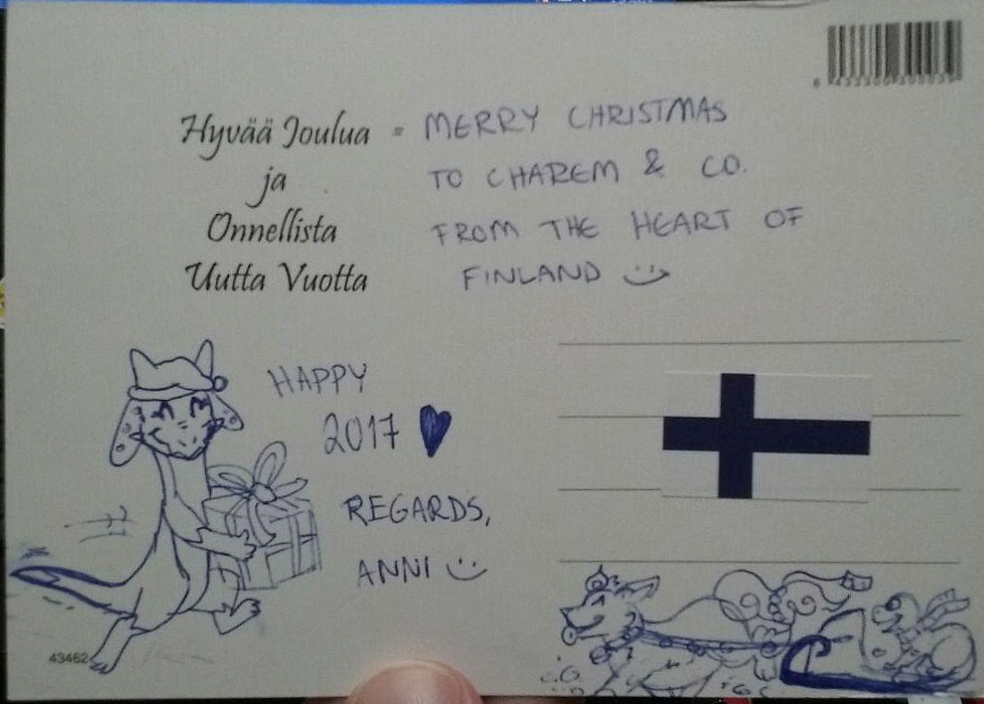 Hyvää Joulua = MERRY CHRISTMAS
ja TO CHAREM & CO.
Onnellista FROM THE HEART OF
Uutta Vuotta FINLAND
HAPPY
2017
REGARDS,
ANNI
43462